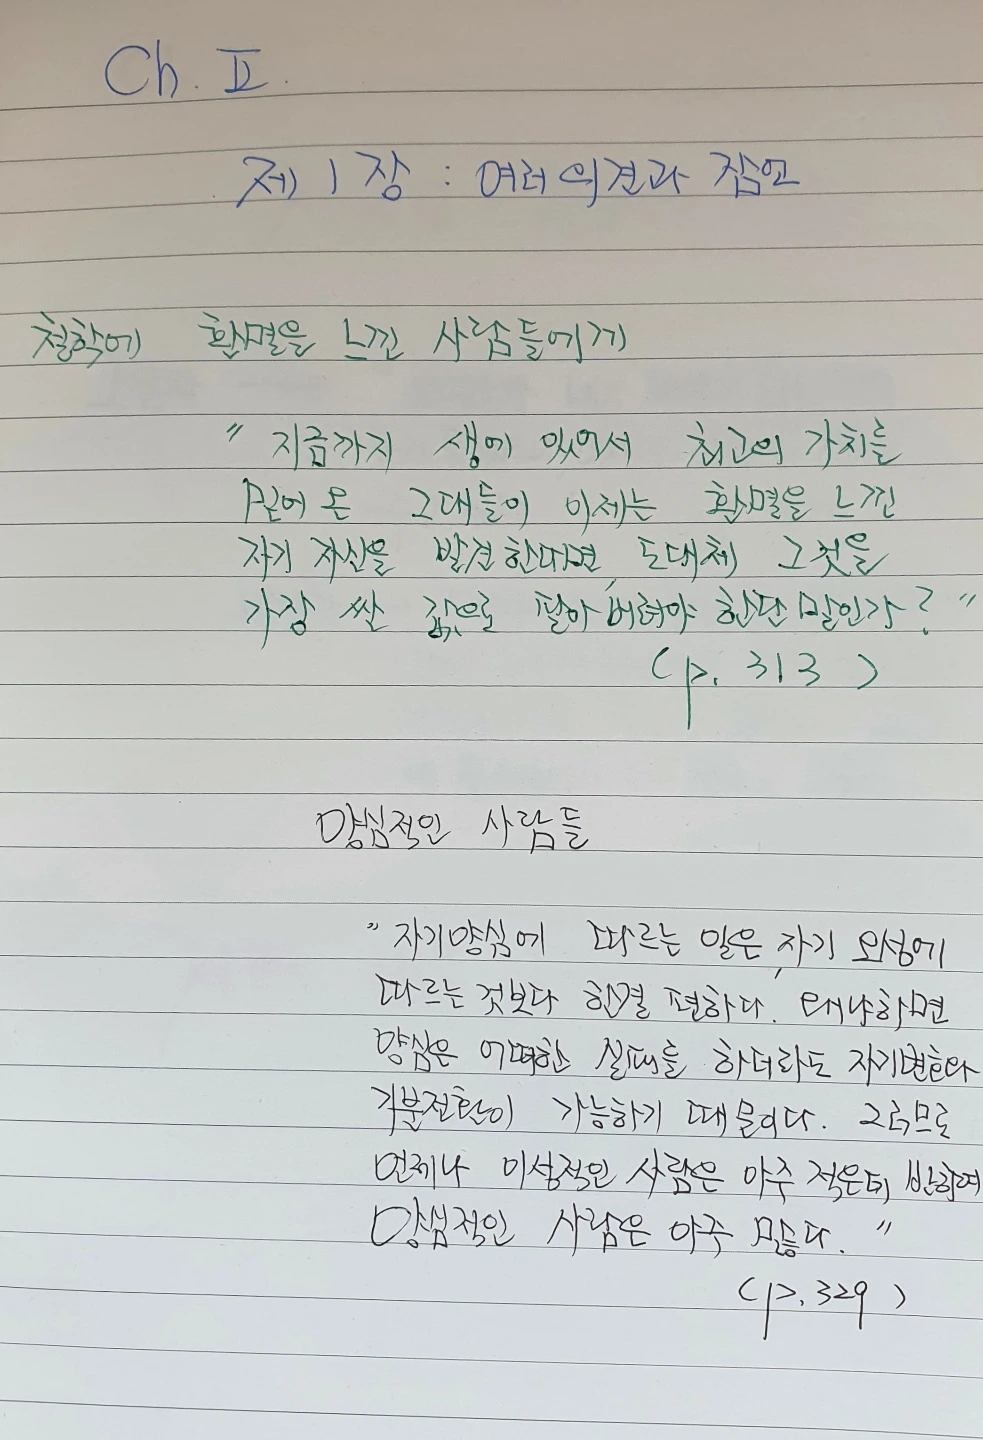 Ch. II.
제 1 장 : 여러 의견과 잠언
철학에 환멸을 느낀 사람들에게
" 지금까지 생에 있어서 최고의 가치를
믿어 온 그대들이 이제는 환멸을 느낀
자기 자신을 발견한다면, 도대체 그것을
가장 싼 값으로 팔아 버려야 한단 말인가? "
(p. 313)
양심적인 사람들
" 자기양심에 따르는 일은, 자기 오성에
따르는 것보다 한결 편하다. 왜냐하면
양심은 어떠한 실패를 하더라도 자기변호와
기분전환이 가능하기 때문이다. 그러므로
언제나 이성적인 사람은 아주 적은데 반하여
양심적인 사람은 아주 많다. "
(p. 329)